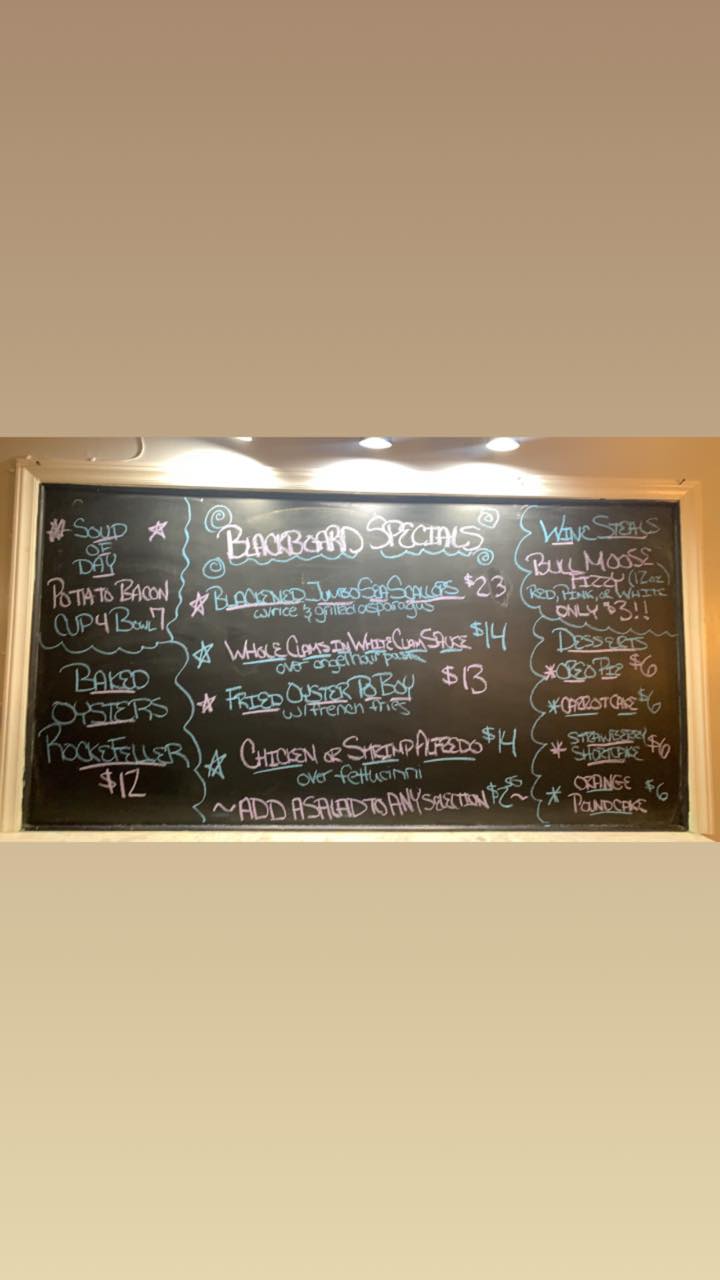 SOUP
OF
DAY
POTATO BACON
CUP 4 BOWL 7
BAKED
OYSTERS
ROCKEFELLER
$12
BLACKBOARD SPECIALS
BLACKENED JUMBO SEA SCALLOPS $23
w/rice & grilled asparagus
WHOLE CLAMS IN WHITE CLAM SAUCE $14
over angel hair pasta
FRIED OYSTER PO BOY $13
w/french fries
CHICKEN OR SHRIMP ALFREDO $14
over fettucinni
~ADD A SALAD TO ANY SELECTION
WINE STEALS
BULL MOOSE
FIZZY (12oz)
RED, PINK, OR WHITE
ONLY $3!!
DESSERTS
*OREO PIE $6
*CARROT CAKE $6
*STRAWBERRY
SHORTCAKE $6
*ORANGE
POUNDCAKE $6